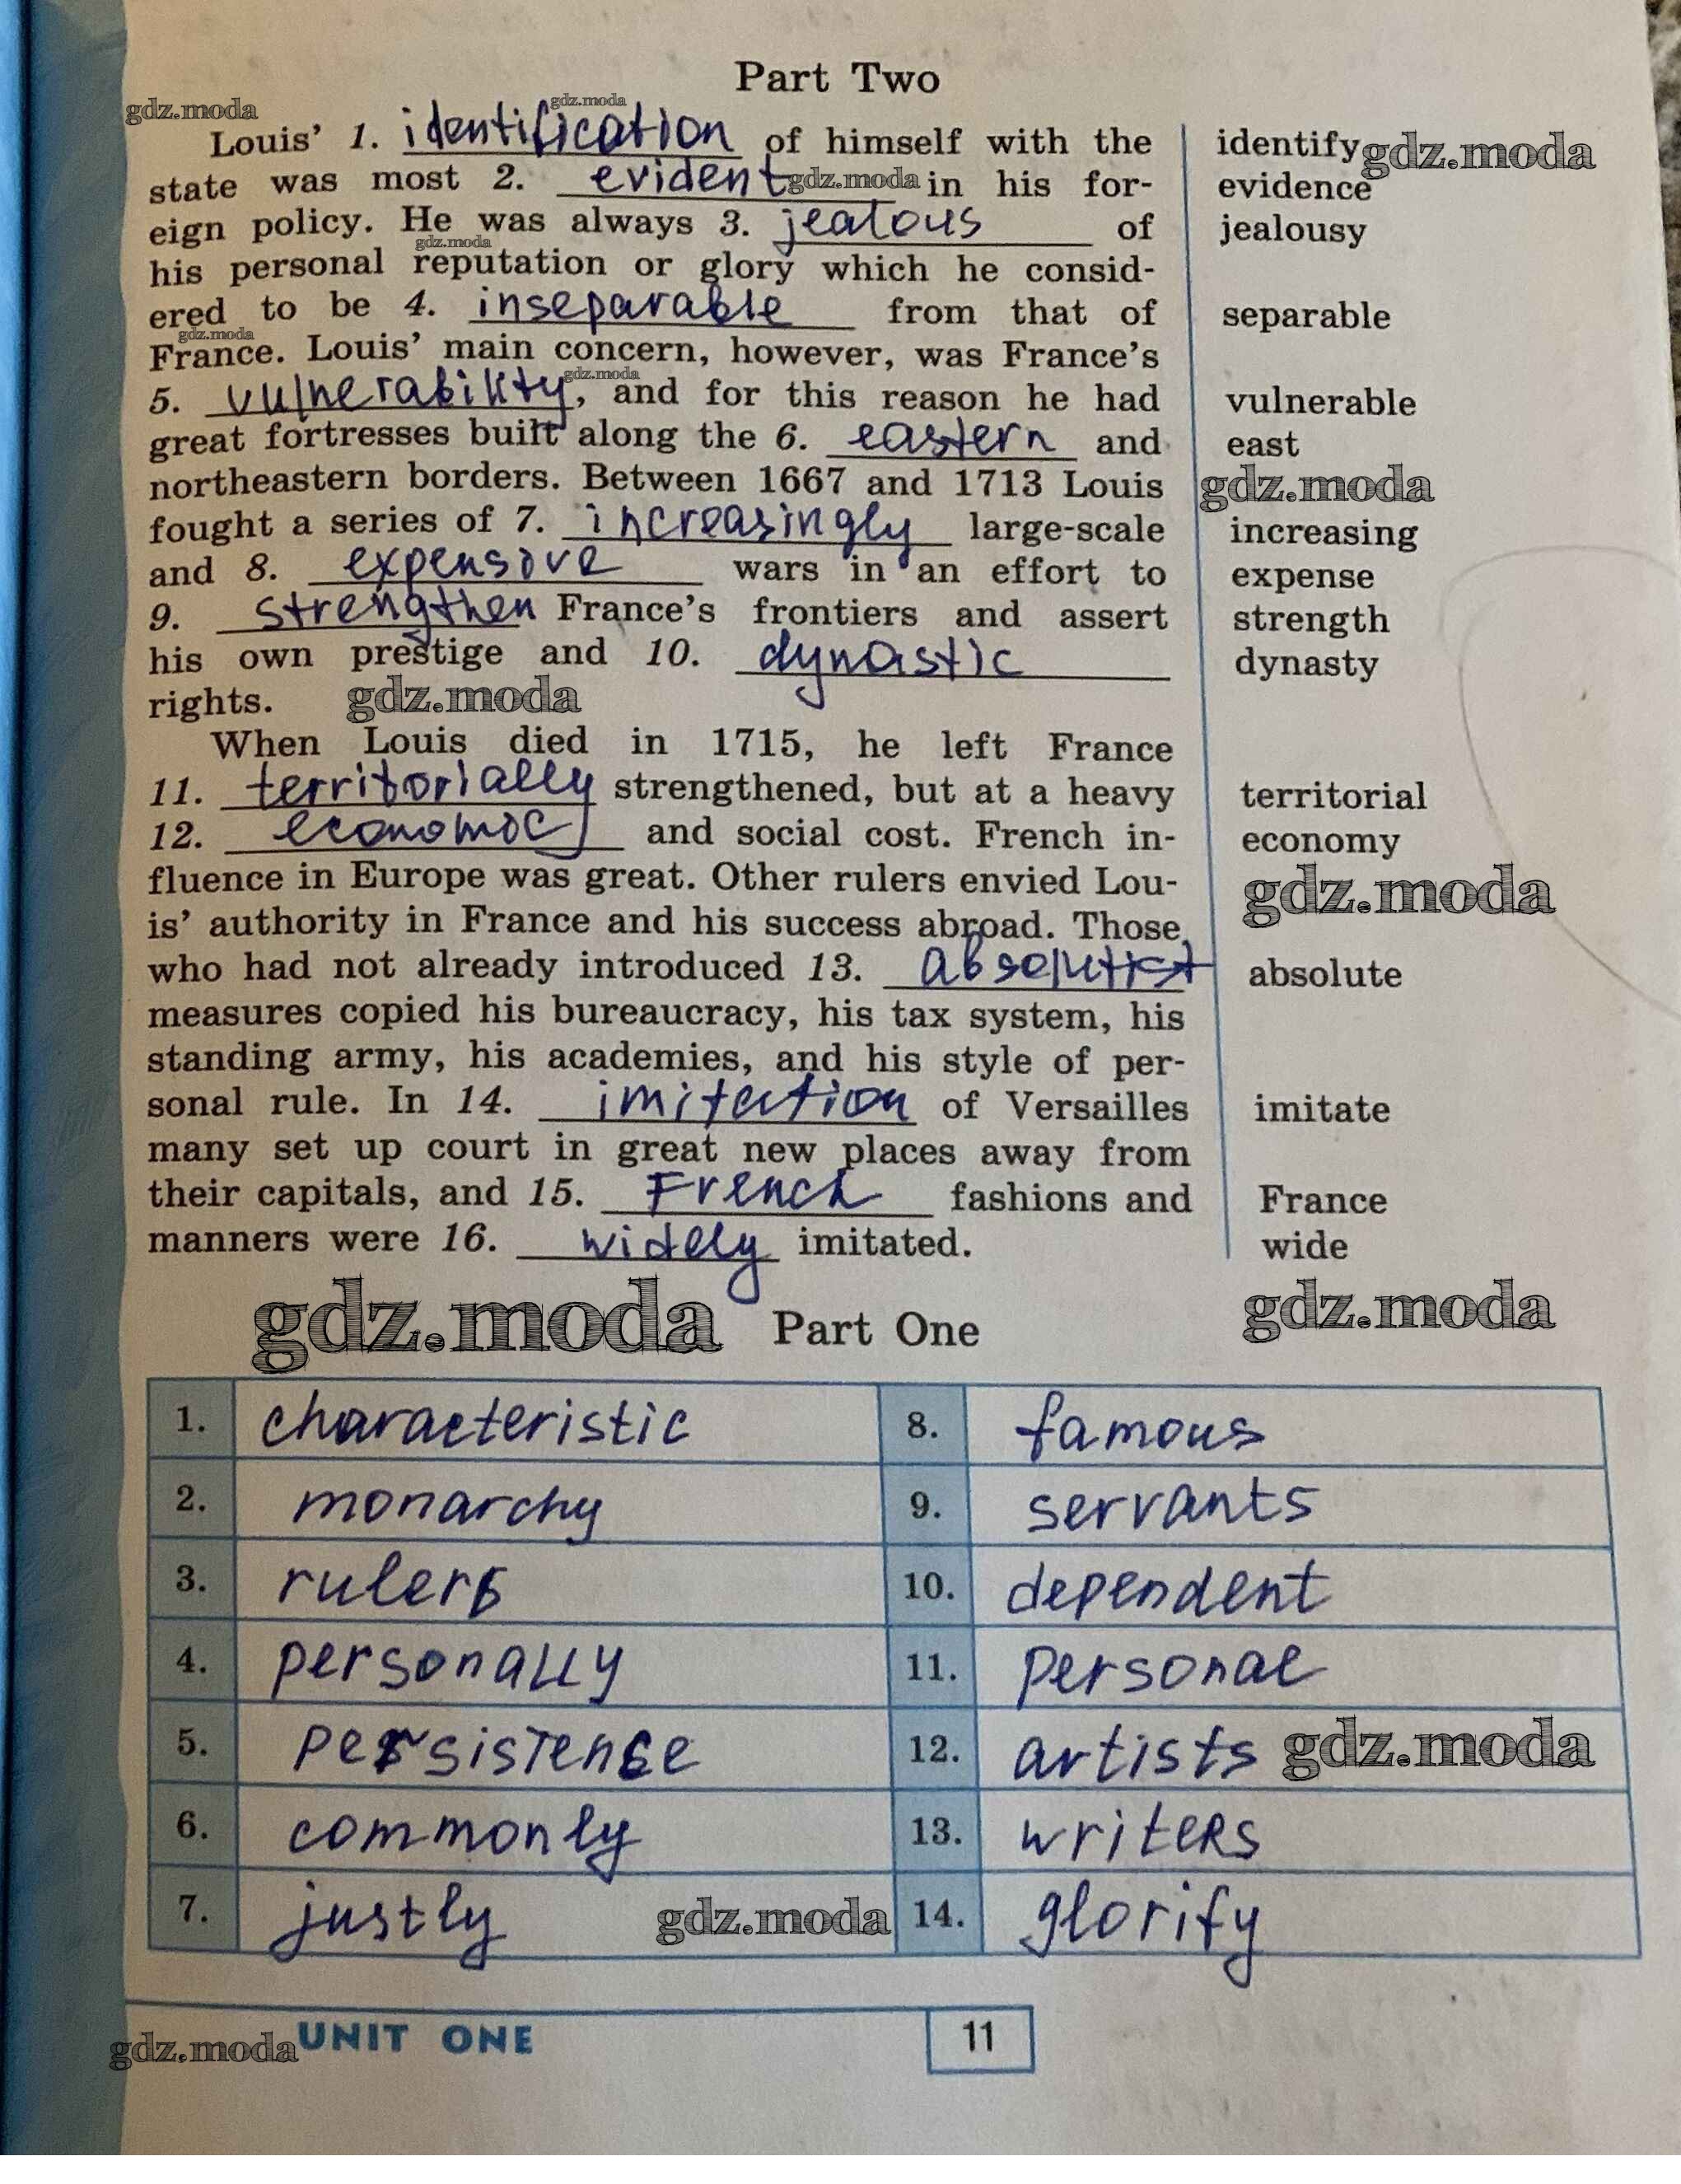 Part Two
gdz.moda
gdz.moda
Louis' 1. identification of himself with the identify gdz.moda
state was most 2. evident gdz.moda in his for- evidence
eign policy. He was always 3. jealous of jealousy
gdz.moda
his personal reputation or glory which he consid-
ered to be 4. inseparable from that of separable
gdz.moda
France. Louis' main concern, however, was France's
gdz.moda
5. vulnerability, and for this reason he had vulnerable
great fortresses built along the 6. eastern and east
northeastern borders. Between 1667 and 1713 Louis gdz.moda
fought a series of 7. increasingly large-scale increasing
and 8. expensive wars in an effort to expense
9. strengthen France's frontiers and assert strength
his own prestige and 10. dynastic dynasty
rights. gdz.moda
When Louis died in 1715, he left France
11. territorially strengthened, but at a heavy territorial
12. economic and social cost. French in- economy
fluence in Europe was great. Other rulers envied Lou- gdz.moda
is' authority in France and his success abroad. Those
who had not already introduced 13. absolutist absolute
measures copied his bureaucracy, his tax system, his
standing army, his academies, and his style of per-
sonal rule. In 14. imitation of Versailles imitate
many set up court in great new places away from
their capitals, and 15. French fashions and France
manners were 16. widely imitated. wide
gdz.moda Part One gdz.moda
1. characteristic 8. famous
2. monarchy 9. servants
3. rulers 10. dependent
4. personally 11. personal
5. persistence 12. artists gdz.moda
6. commonly 13. writers
7. justly gdz.moda 14. glorify
gdz.moda UNIT ONE 11